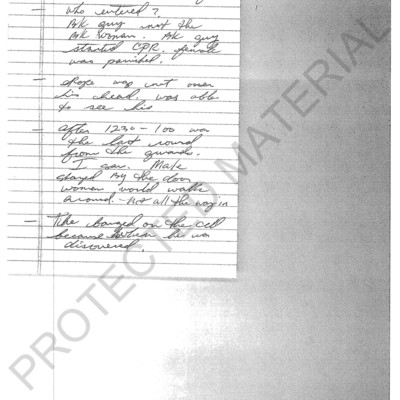 - who entered?
BK guy not the
BK woman. BK guy
started CPR. female
was panicked.
- was not over
his head. was able
to see his
- after 1230-100 was
the last round
from the guards.
I saw. Male
stayed by the door
women would walk
around. - not all the way in
- Like banged on the cell
because when he was
discovered.
PROTECTED MATERIAL